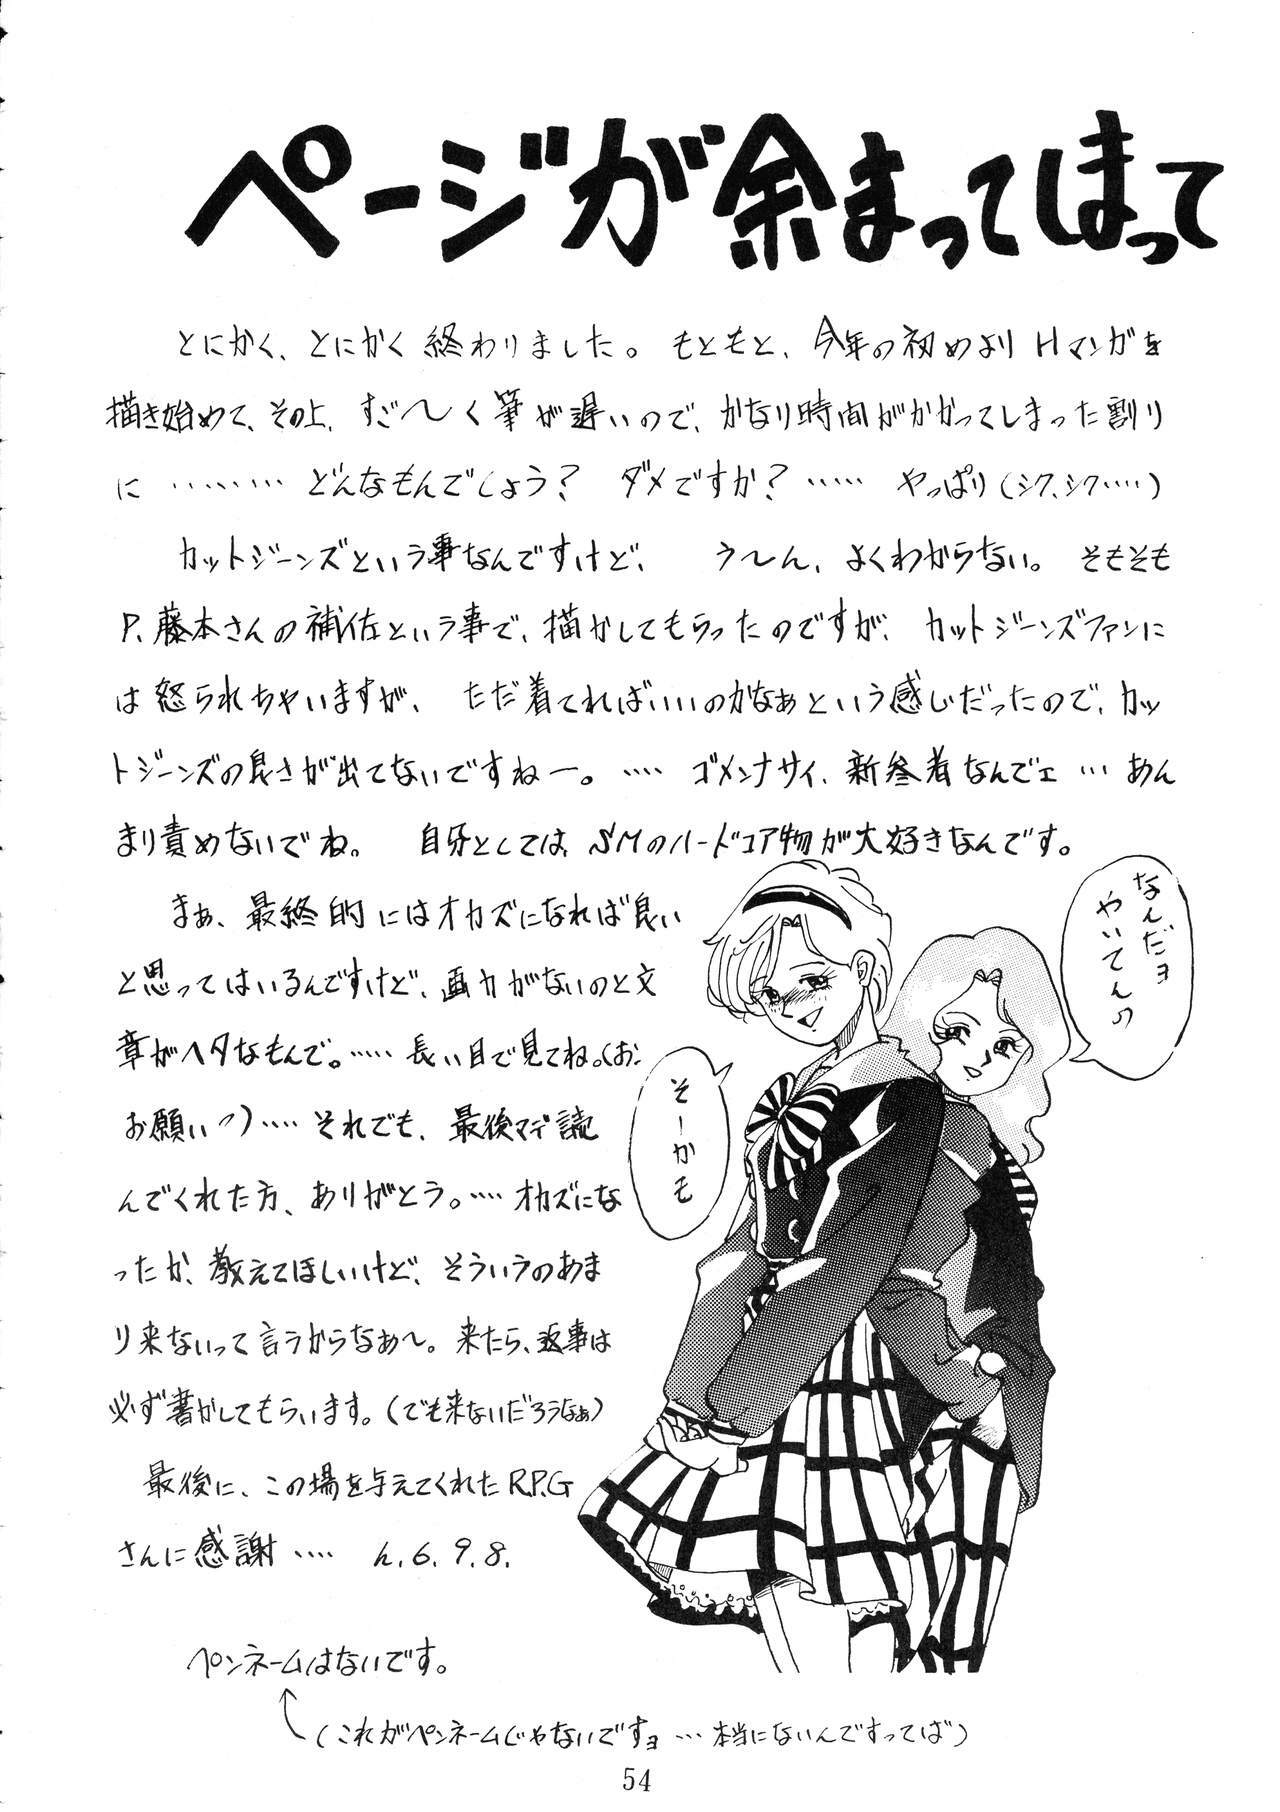 ページが余まってしまって
とにかく、とにかく終わりました。もともと、今年の初めよりHマンガを
描き始めて、その上、すご～く筆が遅いので、かなり時間がかかってしまった割り
に ……… どんなもんでしょう? ダメですか? …… やっぱり(シク、シク……)
カットジーンズという事なんですけど、 う～ん、よくわからない。そもそも
P、藤本さんの補佐という事で、描かしてもらったのですが、カットジーンズファンに
は怒られちゃいますが、ただ着てればいいのかなぁという感じだったので、カッ
トジーンズの良さが出てないですねー。…… ゴメンナサイ、新参者なんでェ … あん
まり責めないでね。 自分としては、SMのハードコア物が大好きなんです。
まぁ、最終的にはオカズになれば良い
と思ってはいるんですけど、画力がないのと文
章がヘタなもんで。…… 長い目で見てね。(お
お願いっ)…… それでも、最後マデ読
んでくれた方、ありがとう。…… オカズにな
ったか、教えてほしいけど、そういうのあま
り来ないって言うからなぁ～。来たら、返事は
必ず書かしてもらいます。(でも来ないだろうなぁ)
最後に、この場を与えてくれたR.P.G
さんに感謝 …… h.6.9.8.
なんだョ
やいてんの
そーかも
ペンネームはないです。
(これがペンネームじゃないですョ … 本当にないんですってば)
54